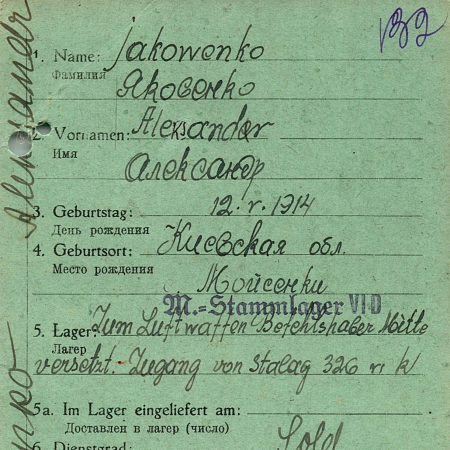 132
1. Name: Jakowenko
Фамилия Яковенко
2. Vornamen: Alexander
Имя Александр
3. Geburtstag: 12. V. 1914
День рождения
4. Geburtsort: Киевская обл.
Место рождения Мойсенки
M.=Stammlager VI D
5. Lager: Zum Luftwaffen Befehlshaber Mitte
Лагер versetzt. Zugang von Stalag 326 VI K
5a. Im Lager eingeliefert am:
Доставлен в лагер (число)
6. Dienstgrad: Sold
Aleksandr